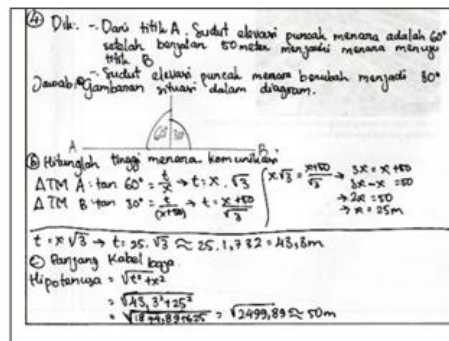 ④ Dik: -. Dari titik A, Sudut elevasi puncak menara adalah 60°
setelah berjalan 50 meter menjauhi menara menuju
titik B
-. Sudut elevasi puncak menara berubah menjadi 30°
Jawab: @ Gambaran situasi dalam diagram.
60° 30°
A B
ⓑ Hitunglah tinggi menara komunikasi
Δ TM A : tan 60° = t/x → t = x . √3
Δ TM B : tan 30° = t/(x+50) → t = x+50/√3
x√3 = x+50/√3 → 3x = x+50
3x - x = 50
→ 2x = 50
→ x = 25m
t = x√3 → t = 25 . √3 ≈ 25 . 1,732 = 43,3m
ⓒ Panjang Kabel baja.
Hipotenusa = √t²+x²
= √43,3²+25²
= √1874,89+625 = √2499,89 ≈ 50m